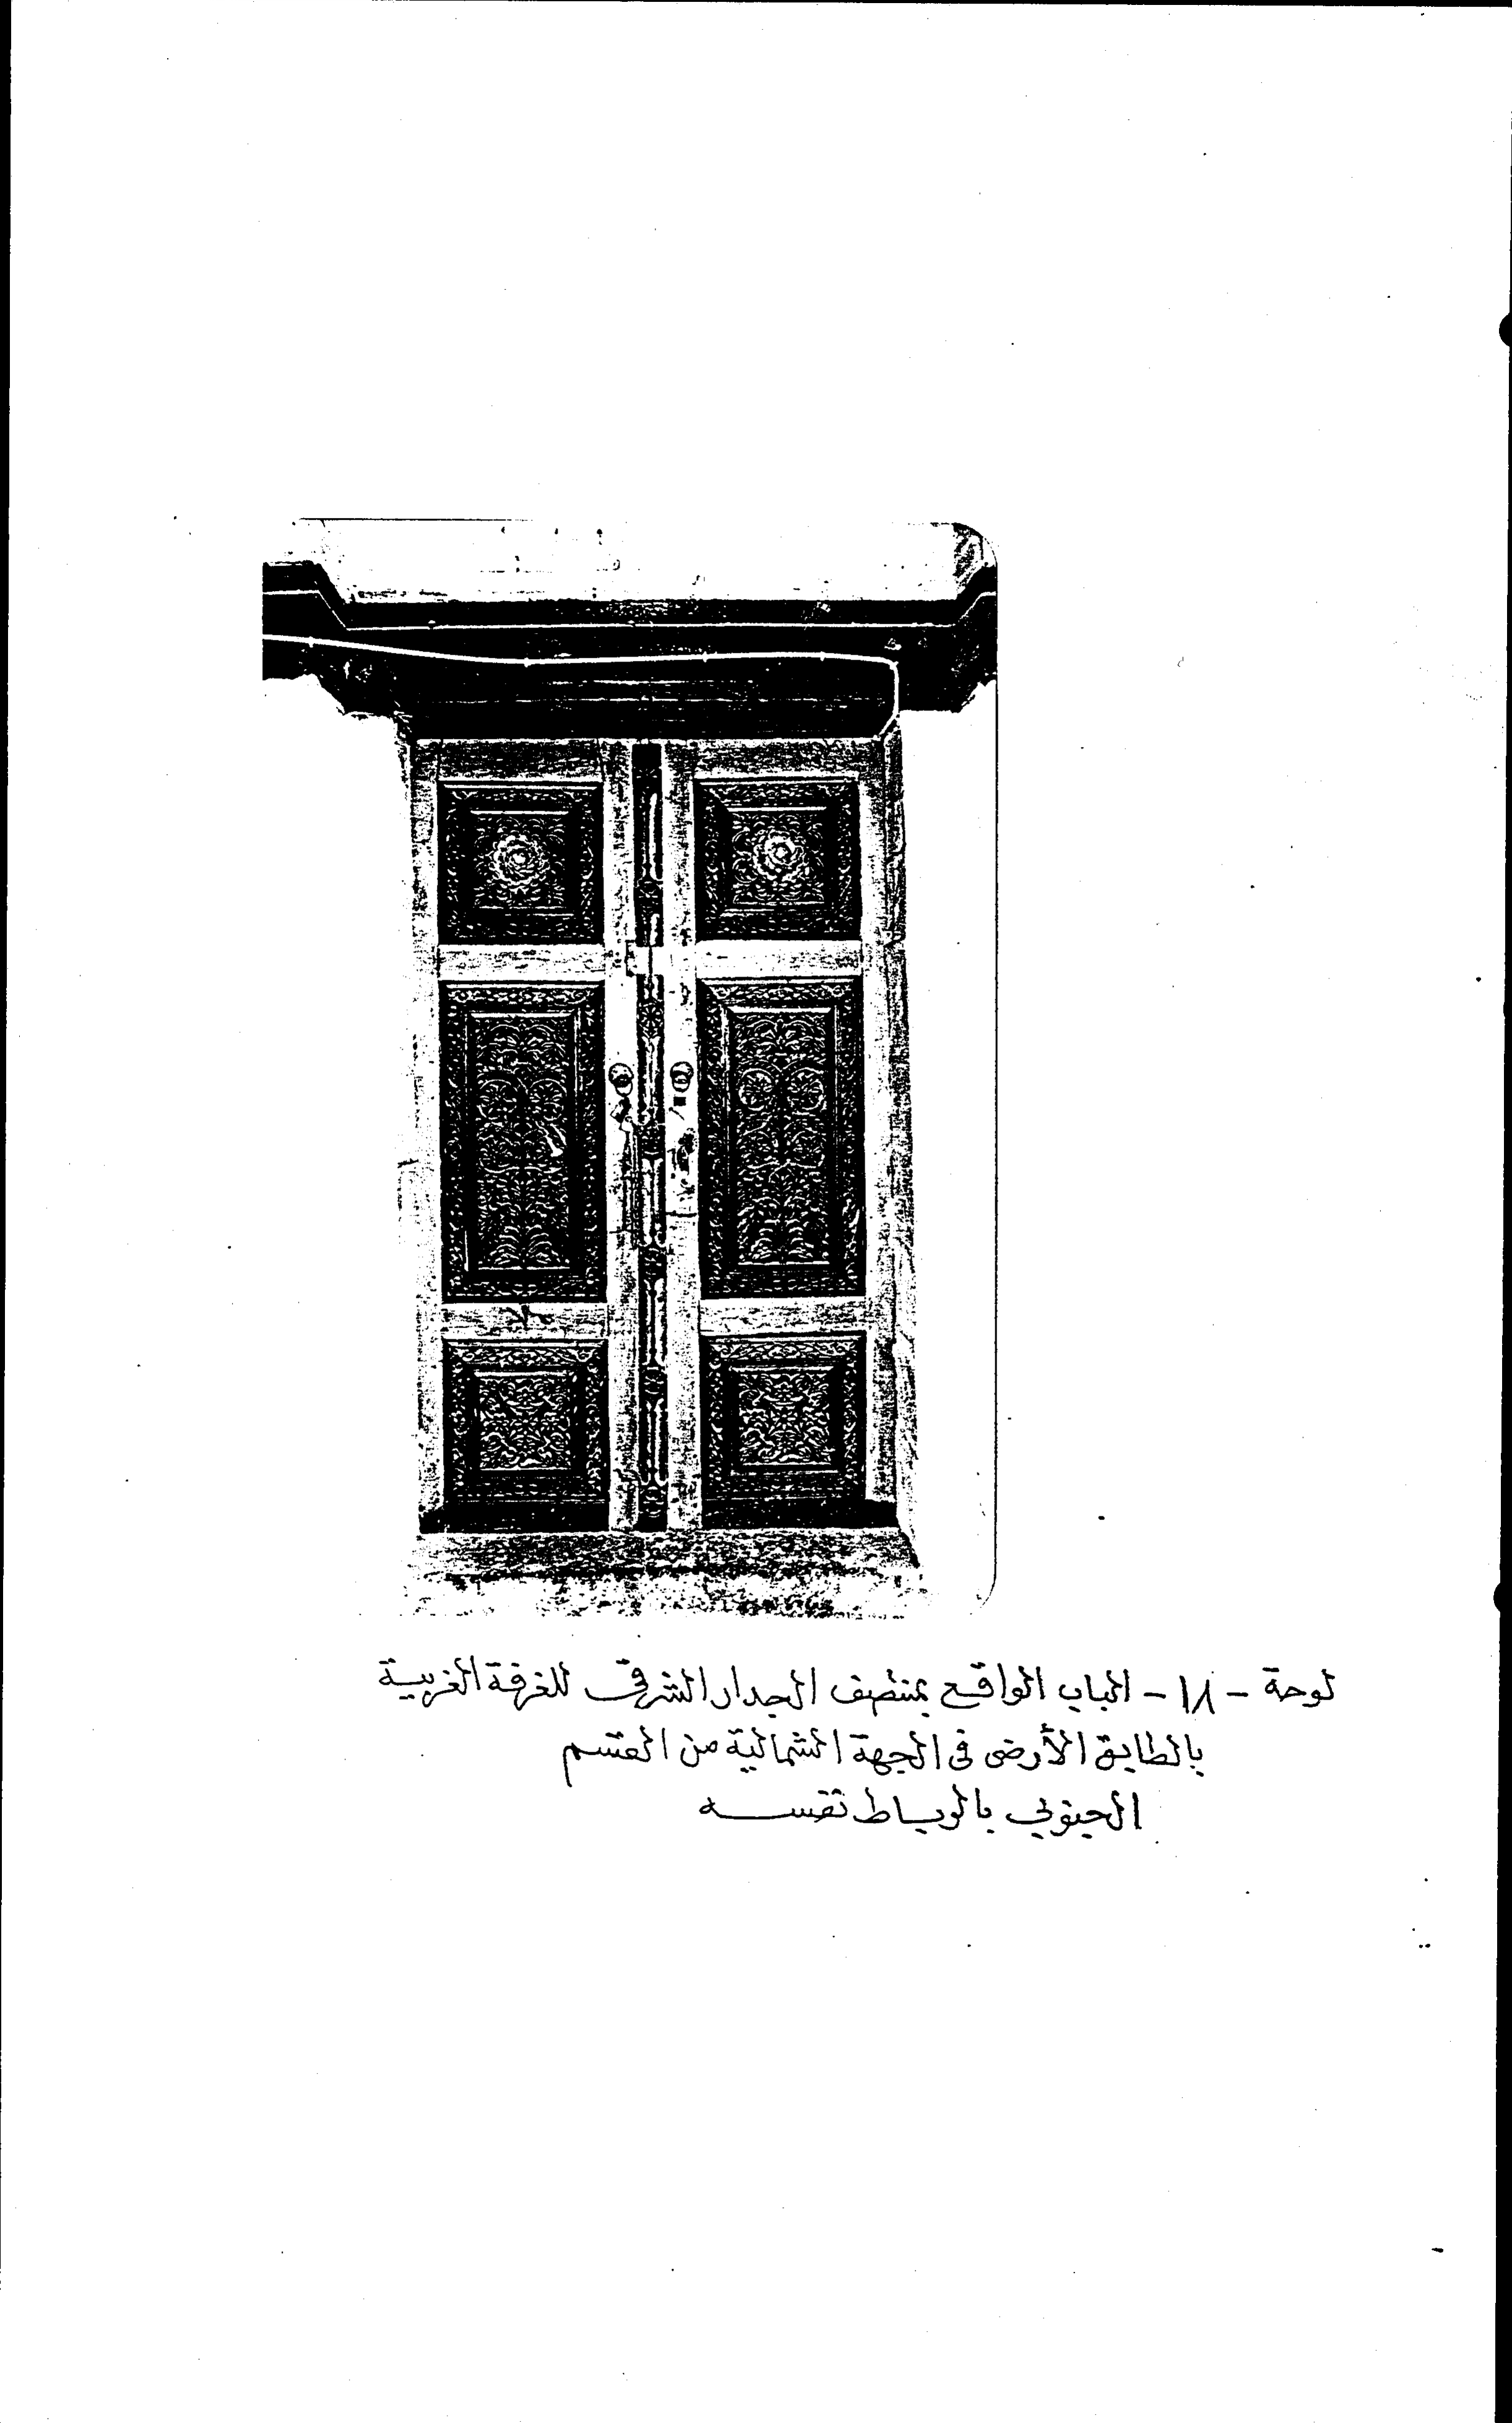 لوحة - ١٨ - الباب الواقع بمنتصف الجدار الشرقى للغرفة الغربية
بالطابق الأرضى فى الجهة الشمالية من القسم
الجنوبى بالرباط نفسه